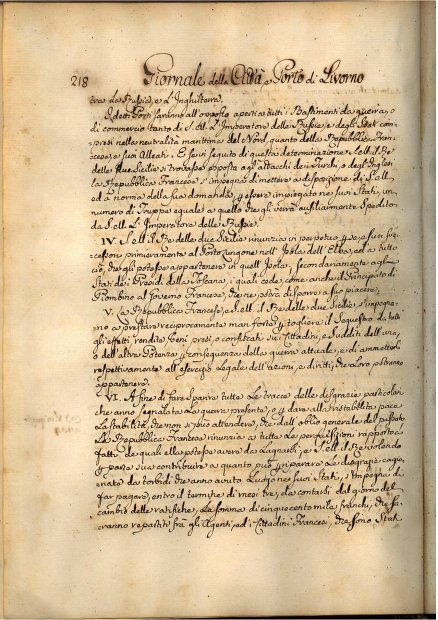 218 Giornale della Città, e Porto di Livorno
tra la Russia, e l'Inghilterra.
I detti Porti saranno all'opposto aperti a tutti i Bastimenti da guerra, o
di commercio tanto di S. M. l'Imperatore delle Russie, e degli Stati com-
presi nella neutralità marittima del Nord, quanto della Repubblica Fran-
cese, e suoi Alleati. E se in seguito di questa determinazione S. M. il Re
delle due Sicilie si trovasse opposta agli attacchi dei Turchi, o degl'Inglesi
la Repubblica Francese s'impegna di mettere a disposizione di S. M.
ed a norma della sua domanda, per essere impiegato nei suoi Stati, un
numero di Truppa eguale a quello che gli verrà ausiliarmente spedito
da S. M. l'Imperatore delle Russie.
IV. S. M. il Re delle due Sicilie rinunzia in perpetuo per se, e suoi suc-
cessori primieramente al Porto Longone nell'Isola dell'Elba, ed a tutto
ciò, che gli potesse appartenere in quell'Isola, secondariamente agli
Stati dei Presidi della Toscana, i quali cede, come anche il Principato di
Piombino al Governo Francese, che ne potrà disporre a suo piacere.
V. La Repubblica Francese, e S. M. il Re delle due Sicilie s'impegno-
no a prestare reciprocamente man forte per togliere il sequestro da tutti
gli effetti, rendite, beni presi, o confiscati sui Cittadini, e Sudditi dell'una,
o dell'altra Potenza per conseguenza della guerra attuale, e di ammetterli
respettivamente all'esercizio legale dell'azioni, e diritti, che loro potranno
appartenere.
VI. A fine di fare sparire tutte le tracce delle disgrazie particolari
che anno segnalata la guerra presente, e per dare alla ristabilita pace
la stabilità, che non si può attendere, che dall'oblio generale del passato
la Repubblica Francese rinunzia a tutte le persecuzioni rapporto a'
fatti, de' quali ella potesse avere da lagnarsi, e S. M. il Re volendo
per parte sua contribuire a quanto può per riparare le disgrazie cagio-
nate da' torbidi che anno avuto luogo nei suoi Stati, s'impegna di
far pagare, entro il termine di mesi tre, da contarsi dal giorno del
cambio delle ratifiche, la somma di cinquecento mila franchi, che sa-
ranno repartiti fra gli Agenti, ed i Cittadini Francesi, che sono stati